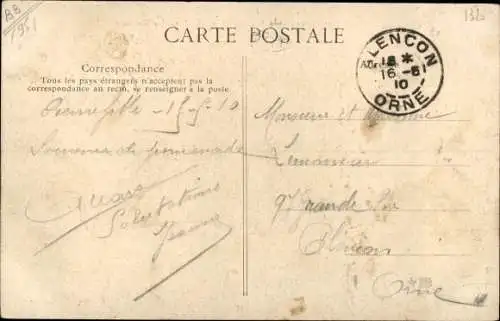 BB
1951
CARTE POSTALE
Correspondance
Tous les pays étrangers n'acceptent pas la
correspondance au recto, se renseigner à la poste
Pierrefitte - 15-5-10
Souvenir de promenade
Salutations
Jeanne
ALENCON
16 -5
10
ORNE
Monsieur et Madame
Lemonnier
9 Grande Rue
Alençon
Orne